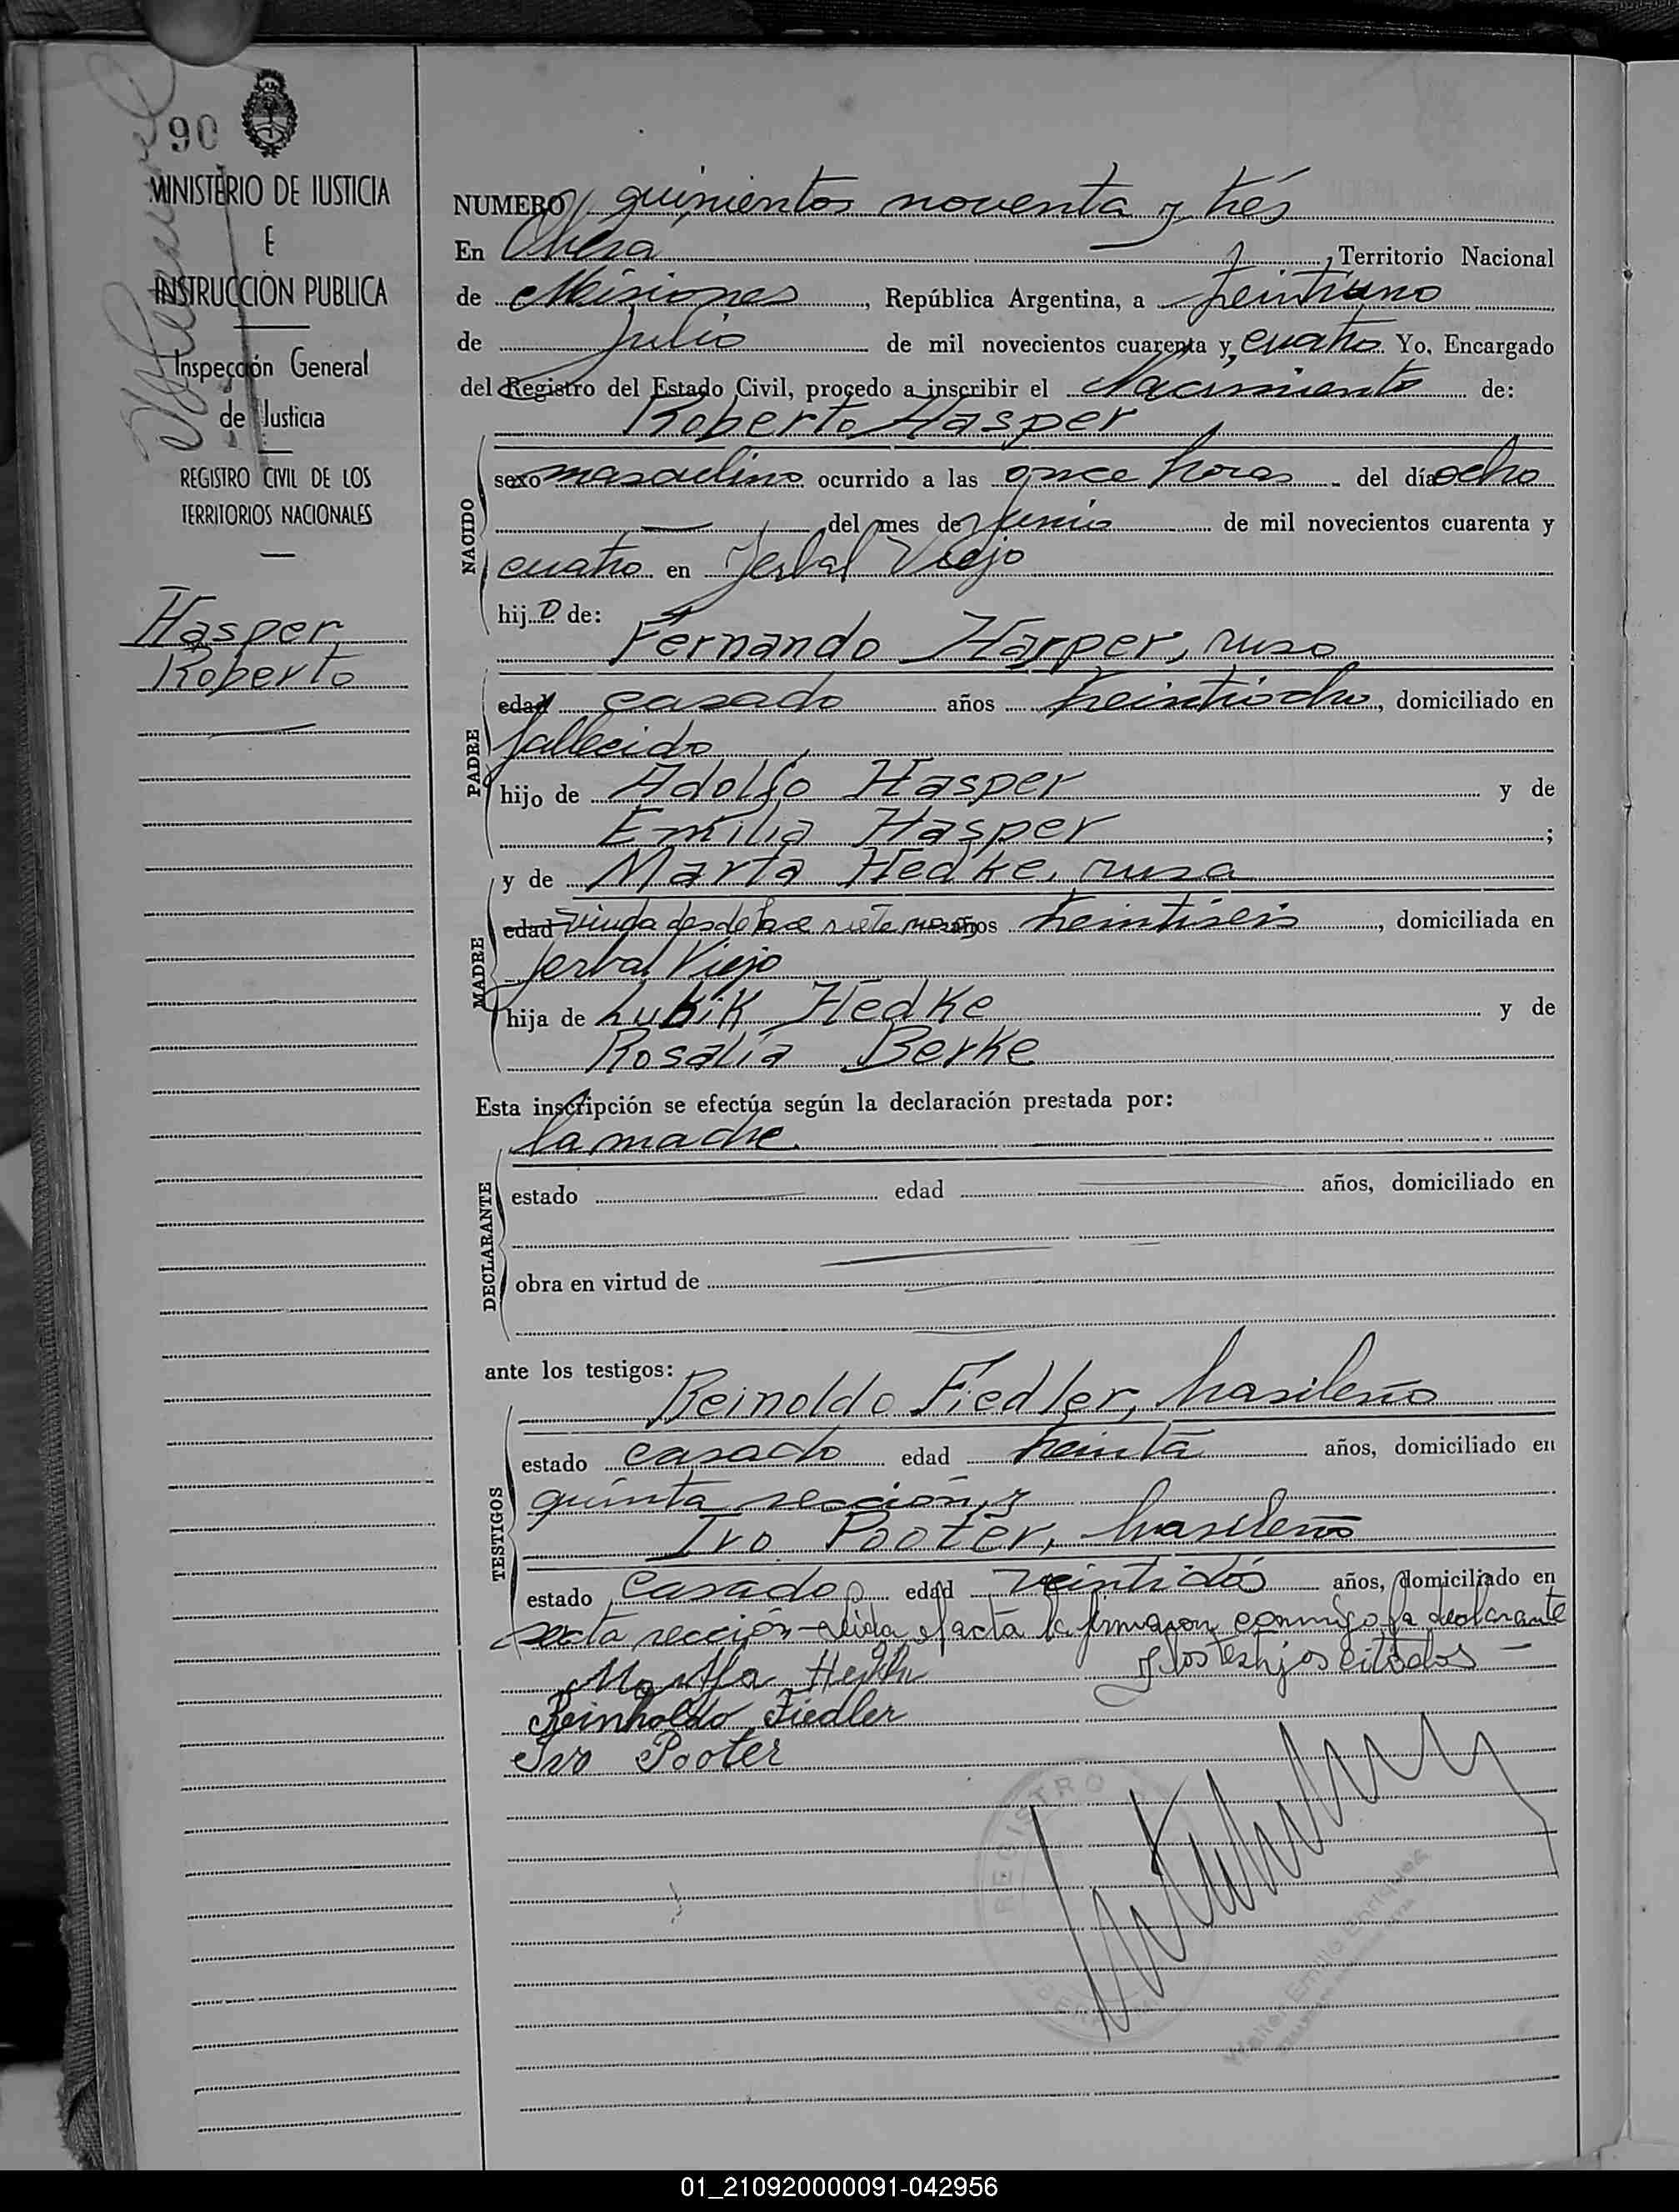 90
MINISTERIO DE JUSTICIA
E
INSTRUCCION PUBLICA
Inspección General
de Justicia
REGISTRO CIVIL DE LOS
TERRITORIOS NACIONALES
Hasper
Roberto
NUMERO quinientos noventa y trés
En Oberá, Territorio Nacional
de Misiones, República Argentina, a treintiuno
de Julio de mil novecientos cuarenta y cuatro Yo, Encargado
del Registro del Estado Civil, procedo a inscribir el Nacimiento de:
Roberto Hasper
NACIDO
sexo masculino ocurrido a las once horas del día ocho
del mes de Junio de mil novecientos cuarenta y
cuatro en Yerbal Viejo
hijo de:
Fernando Harper, ruso
PADRE
edad casado años treintiocho, domiciliado en
fallecido
hijo de Adolfo Hasper y de
Emilia Hasper;
y de Marta Hedke, rusa
MADRE
edad viuda desde hace siete meses años treintiseis, domiciliada en
Yerbal Viejo
hija de Lubik Hedke y de
Rosalía Berke
Esta inscripción se efectúa según la declaración prestada por:
la madre.
DECLARANTE
estado edad años, domiciliado en
obra en virtud de
ante los testigos:
Reinoldo Fiedler, brasileño
TESTIGOS
estado casado edad treinta años, domiciliado en
quinta sección, y
Ivo Pooter, brasileño
estado casado edad veintidós años, domiciliado en
sexta sección - leída el acta la firmaron conmigo la declarante
y los testigos citados -
Martha
Reinholdo Fiedler
Ivo Pooter
REGISTRO
Walter Emilio Enriquez
01_210920000091-042956